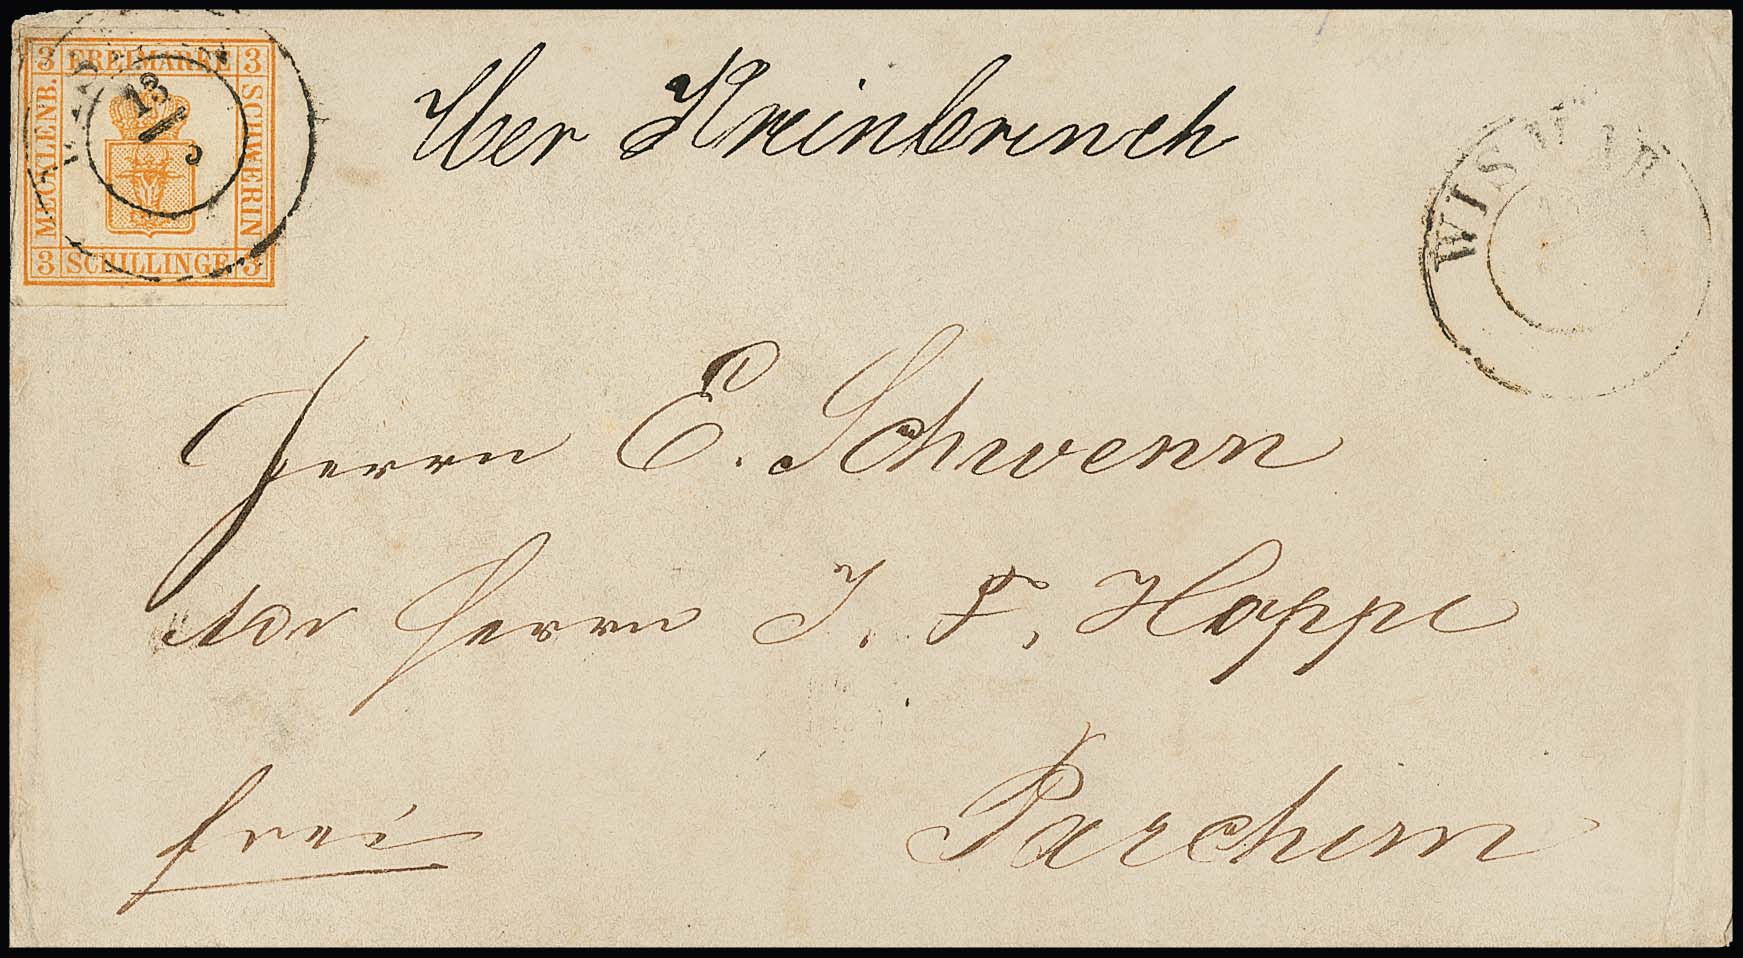 3 FREIMARKE 3
MECKLENB.
SCHWERIN
3 SCHILLINGE 3
13
WISMAR
Herrn E. Schwenn
Herrn J. F. Hoppe
frei
Parchim